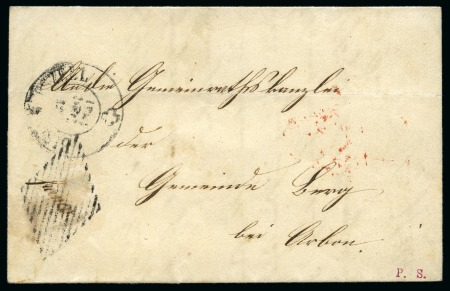 An die Gemeinrathskanzlei
der
Gemeinde Berg
bei Arbon.
P. S.